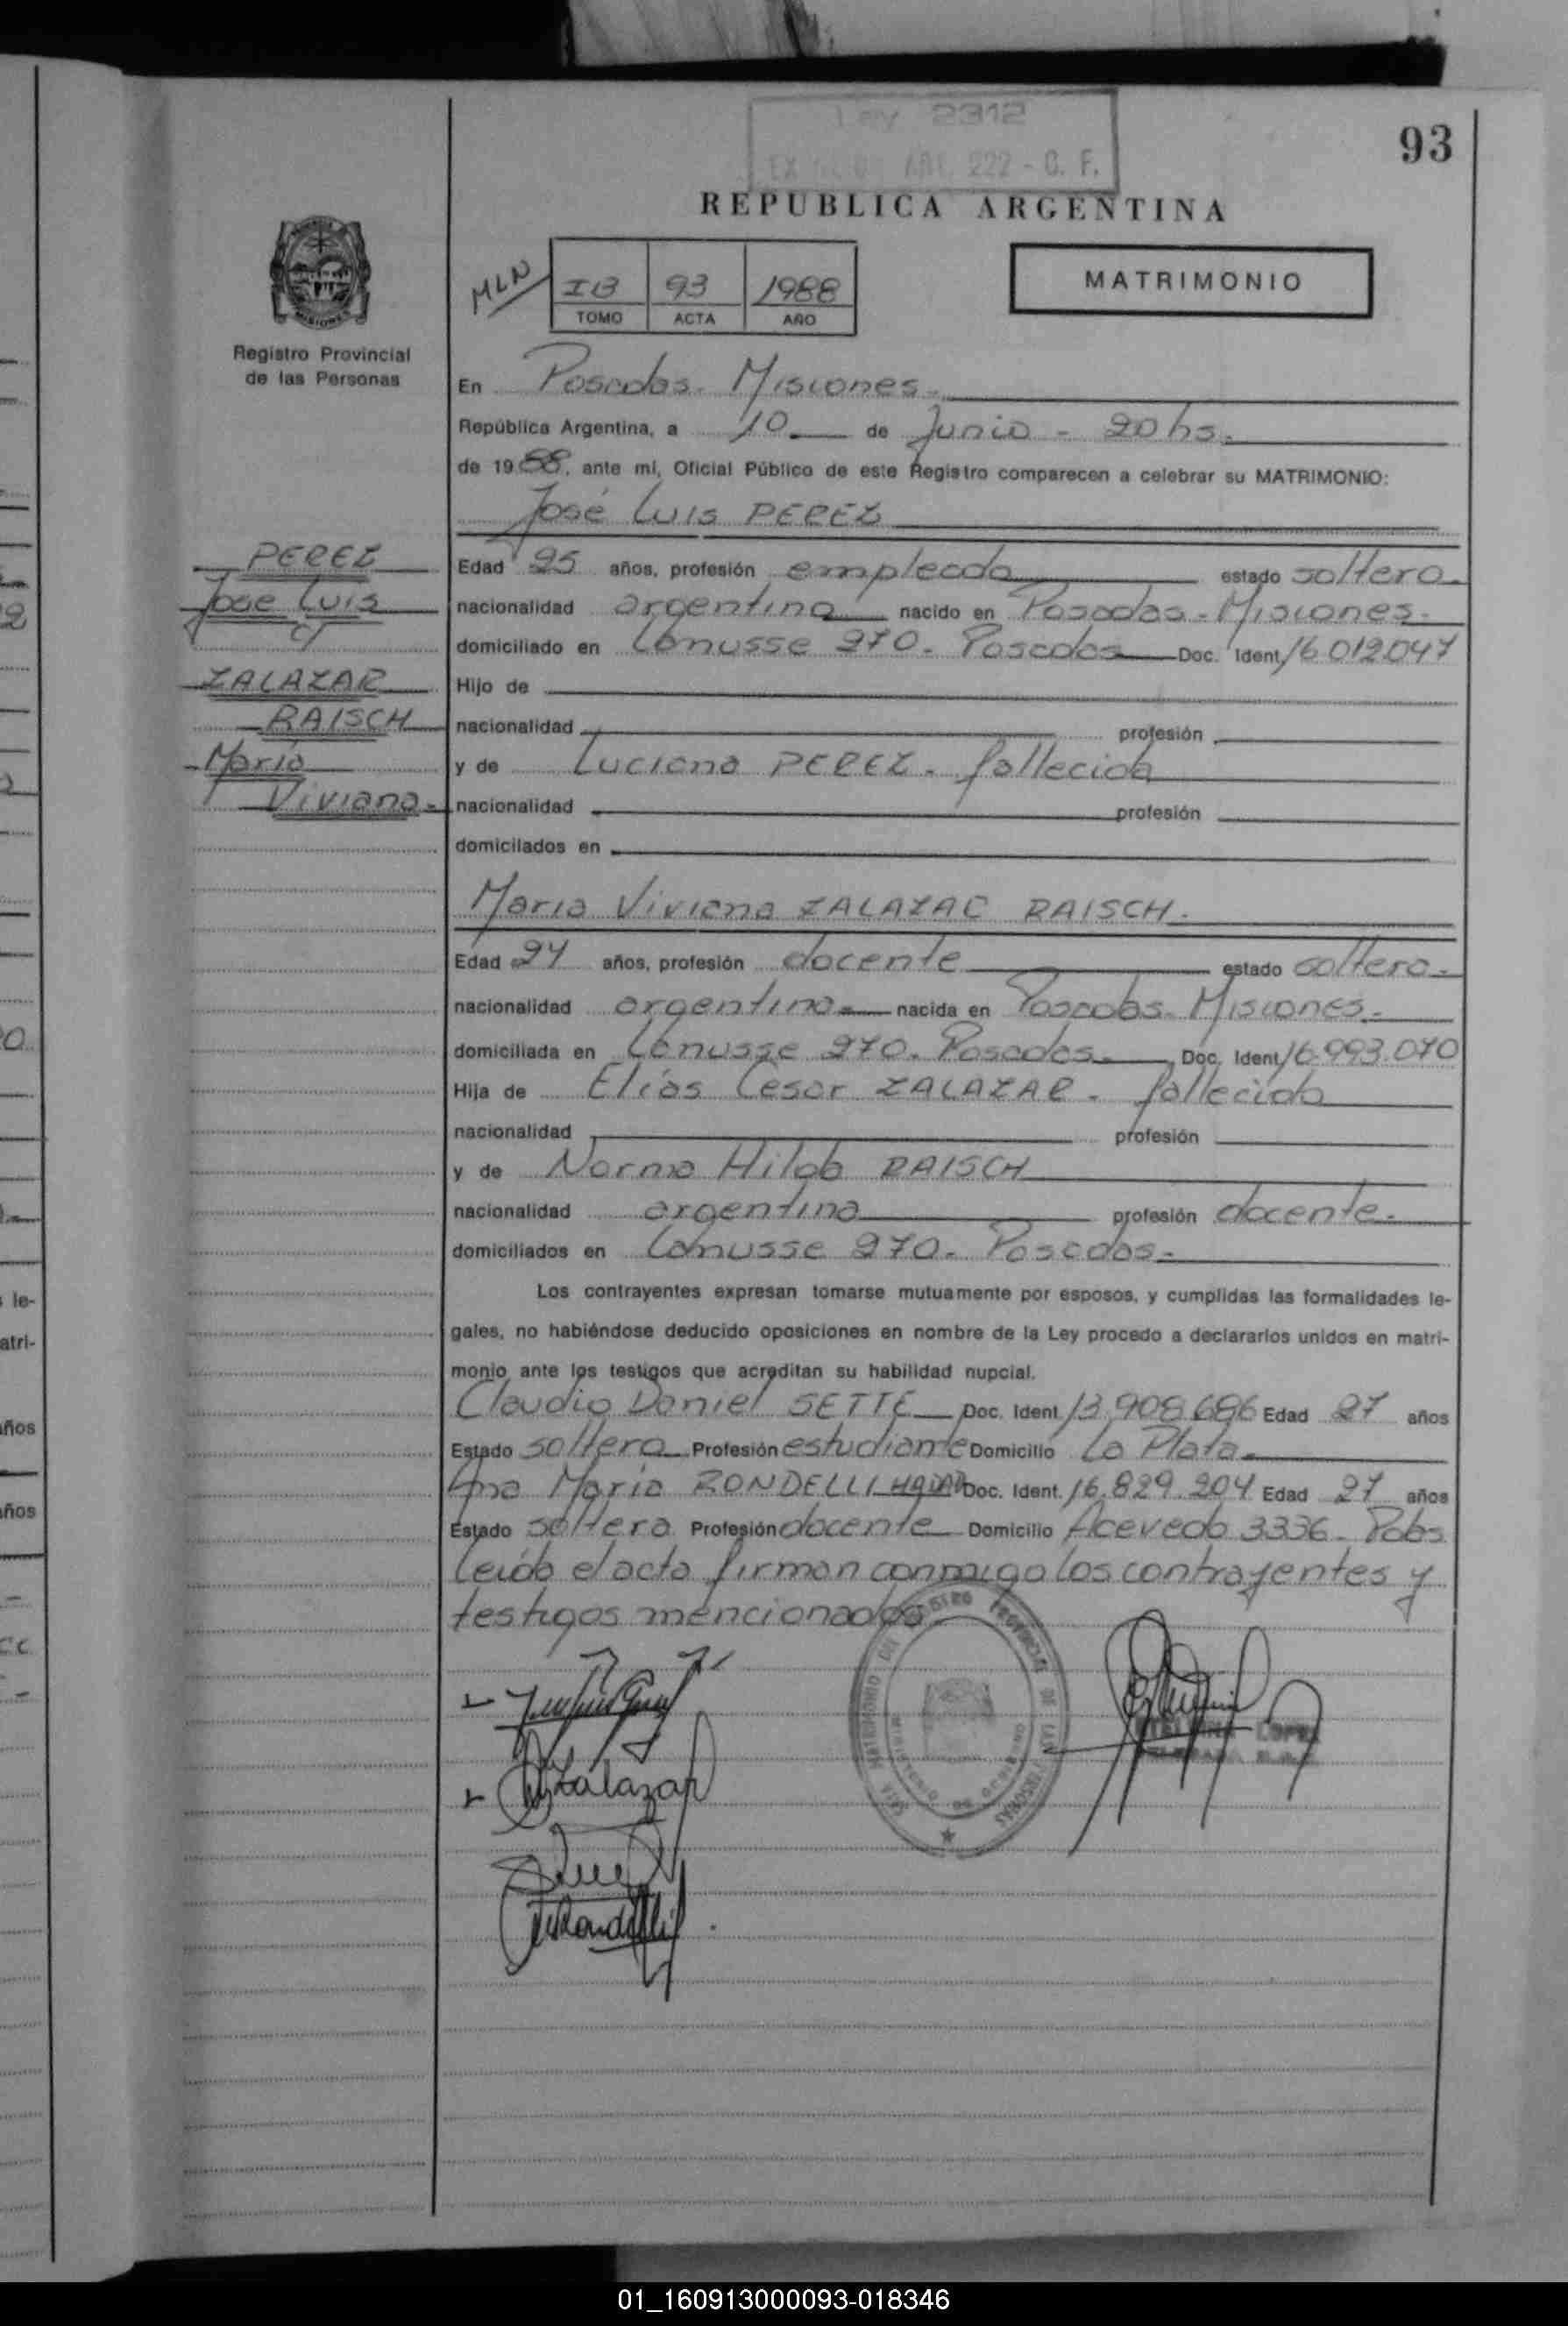 Ley 2312
ART. 222 - C. F.
93
REPUBLICA ARGENTINA
MATRIMONIO
MLN
IB 93 1988
TOMO ACTA AÑO
MISIONES
Registro Provincial
de las Personas
En Posadas - Misiones.
República Argentina, a 10 de Junio - 20 hs.
de 1988, ante mí, Oficial Público de este Registro comparecen a celebrar su MATRIMONIO:
José Luis PEREZ
PEREZ
Jose Luis
c/
ZALAZAR
RAISCH
Maria
Viviana.
Edad 25 años, profesión empleado estado soltero.
nacionalidad argentina nacido en Posadas - Misiones.
domiciliado en Lanusse 270. Posadas Doc. Ident. 16.012.047
Hijo de
nacionalidad profesión
y de Luciana PEREZ. fallecida
nacionalidad profesión
domicilados en
Maria Viviana ZALAZAR RAISCH.
Edad 24 años, profesión docente estado soltera.
nacionalidad argentina nacida en Posadas - Misiones.
domiciliada en Lanusse 270. Posadas. Doc. Ident. 16.993.070
Hija de Elías Cesar ZALAZAR. fallecido
nacionalidad profesión
y de Norma Hilda RAISCH
nacionalidad argentina profesión docente.
domiciliados en Lanusse 270. Posadas.
Los contrayentes expresan tomarse mutuamente por esposos, y cumplidas las formalidades le-
gales, no habiéndose deducido oposiciones en nombre de la Ley procedo a declararlos unidos en matri-
monio ante los testigos que acreditan su habilidad nupcial.
Claudio Daniel SETTE Doc. Ident. 13.908.686 Edad 27 años
Estado soltero Profesión estudiante Domicilio La Plata.
Ana María RONDELLI Doc. Ident. 16.829.204 Edad 27 años
Estado soltera Profesión docente Domicilio Acevedo 3336. Pdas
Leida el acta firman conmigo los contrayentes y
testigos mencionados.
Zalazar
Rondelli
LOPEZ
01_160913000093-018346